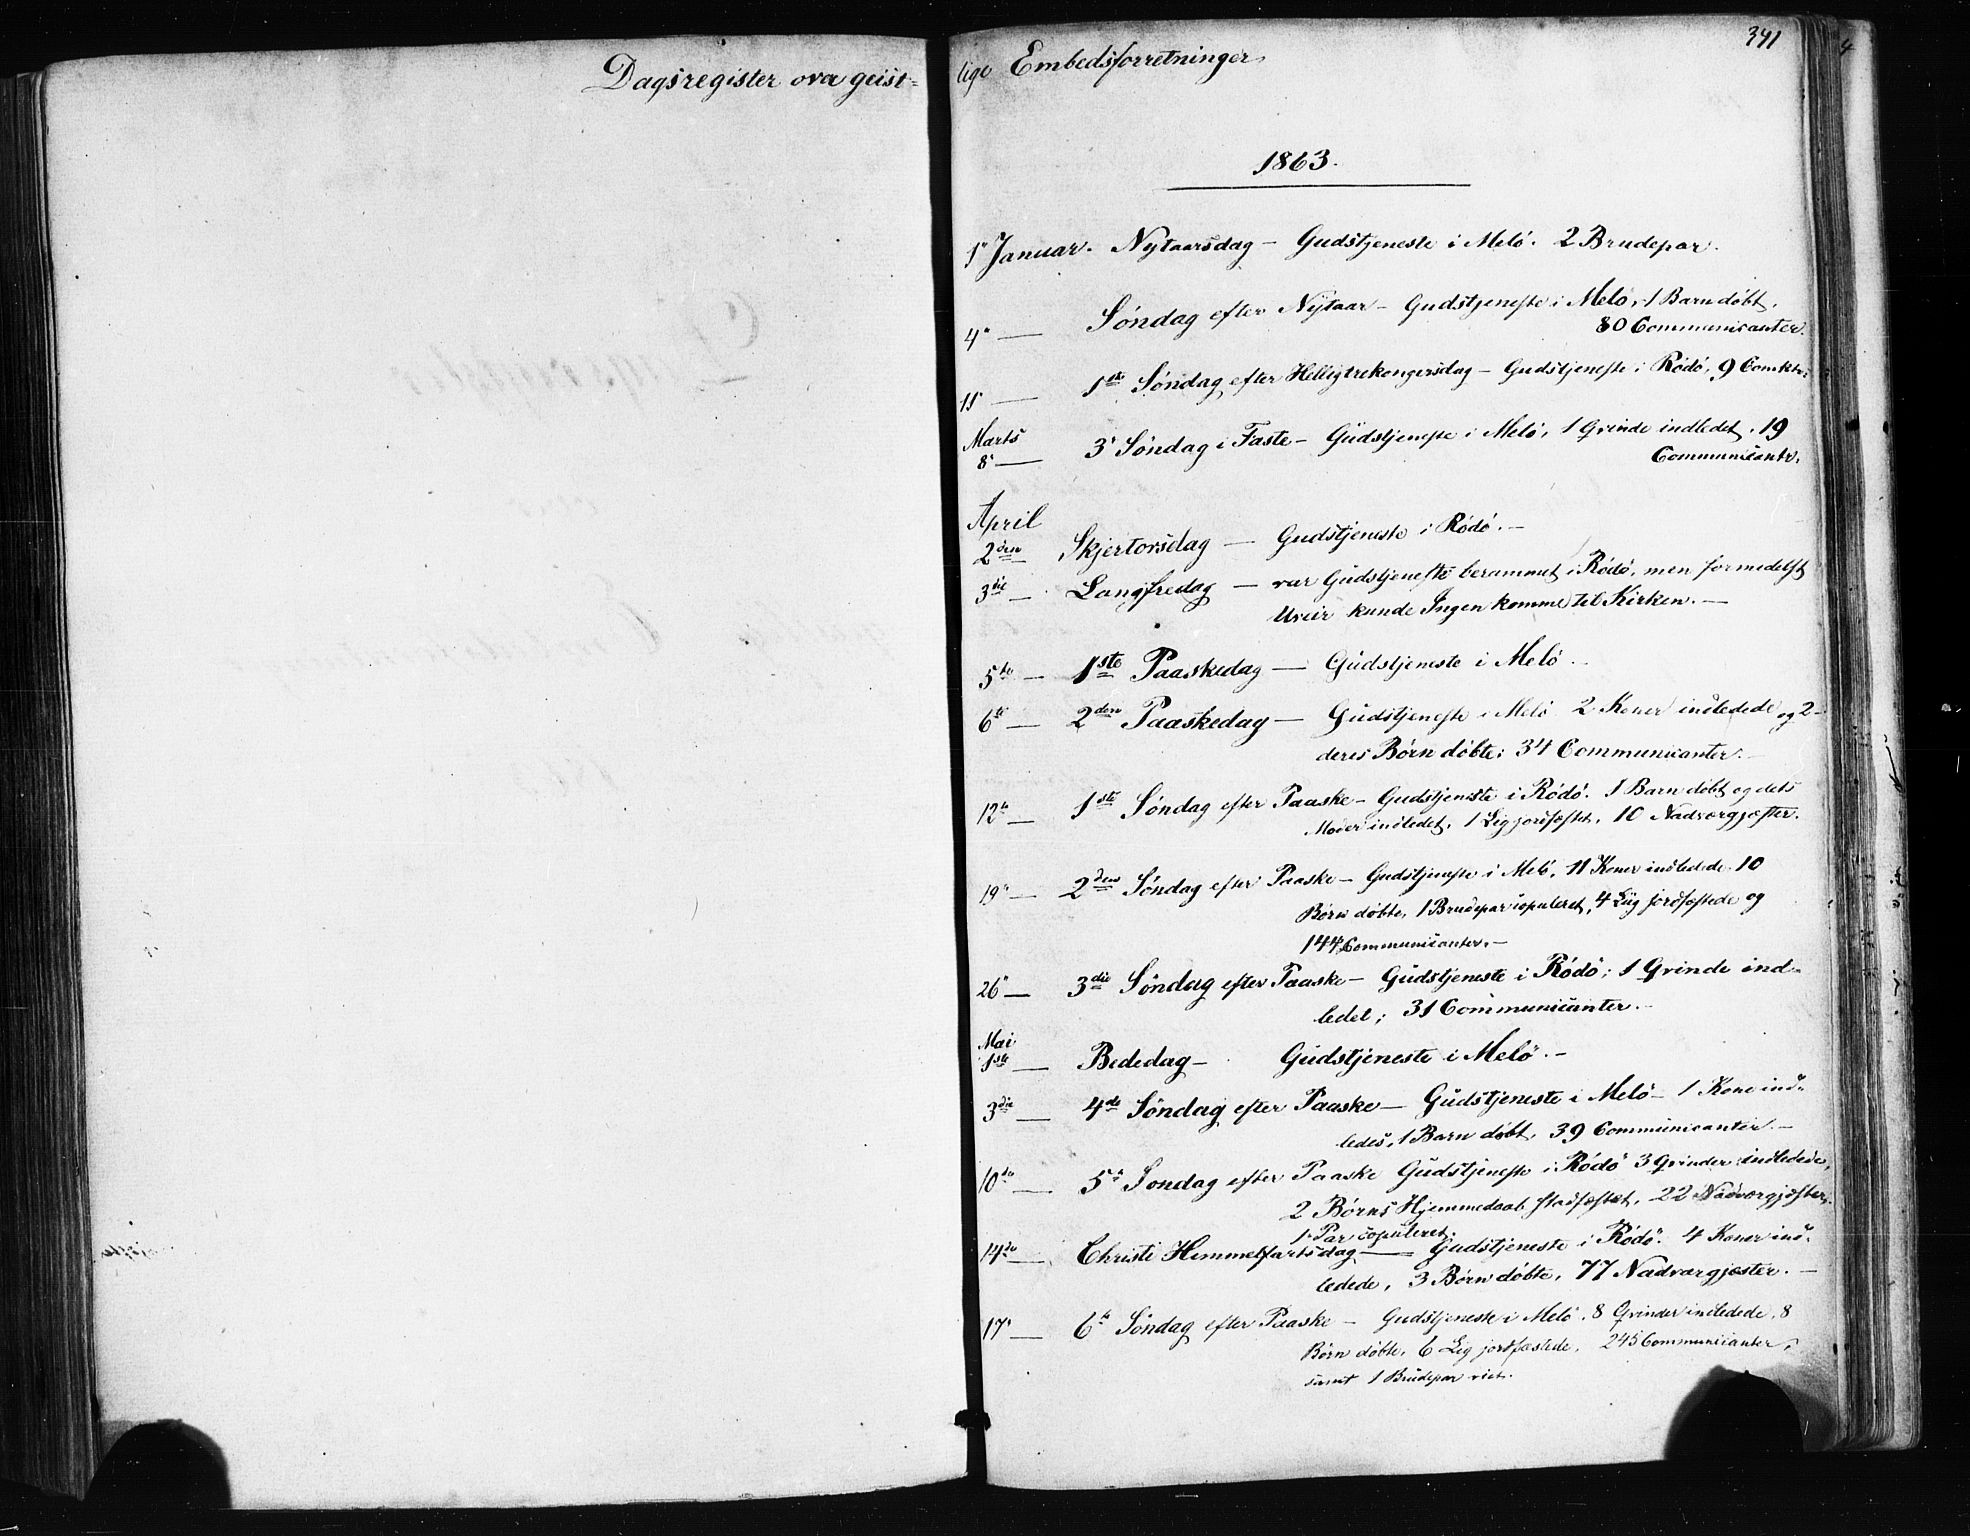 Dagsregister over geist=
lige Embedsforretninger
391
1863.
1' Januar. Nytaarsdag – Gudstjeneste i Melö. 2 Brudepar.
4' — Söndag efter Nytaar – Gudstjeneste i Melö, 1 Barn döbt,
80 Communicanter.
11' — 1ste Söndag efter Helligtrekongersdag – Gudstjeneste i Rödö, 9 Comktr:
Marts
8' — 3' Söndag i Faste – Gudstjeneste i Melö, 1 Qvinde indledet, 19
Communicantr.
April
2den Skjertorsdag — Gudstjeneste i Rödö. –
3die — Langfredag — var Gudstjeneste berammet i Rödö, men formedelst
Uveir kunde Ingen komme til Kirken. —
5te — 1ste Paaskedag — Gudstjeneste i Melö –
6te — 2den Paaskedag — Gudstjeneste i Melö 2 Koner indledede og 2
deres Börn döbte; 34 Communicanter. –
12te — 1ste Söndag efter Paaske – Gudstjeneste i Rödö. 1 Barn döbt og dets
Moder indledet, 1 Lig jordfæstet, 10 Nadvergjæster.
19' — 2den Söndag efter Paaske – Gudstjeneste i Melö, 11 Koner indledede 10
Börn döbte, 1 Brudepar copuleret, 4 Liig jordfæstede og
144 Communicanter. –
26' — 3die Söndag efter Paaske – Gudstjeneste i Rödö; 1 Qvinde ind=
ledet; 31 Communicanter. –
Mai
1ste — Bededag – Gudstjeneste i Melö. –
3die — 4de Söndag efter Paaske — Gudstjeneste i Melö – 1 Kone ind=
ledes, 1 Barn döbt, 39 Communicanter. –
10de — 5te Söndag efter Paaske Gudstjeneste i Rödö 3 Qvinder indledede,
2 Börns Hjemmedaab stadfæstet, 22 Nadvergjæster,
1 Par copuleret.
14de — Christi Himmelfartsdag — Gudstjeneste i Rödö. 4 Koner ind=
ledede, 3 Börn döbte, 77 Nadvergjæster. –
17' — 6te Söndag efter Paaske – Gudstjeneste i Melö, 8 Qvinder indledede, 8
Börn döbte, 6 Lig jordfæstede, 245 Communicanter,
samt 1 Brudepar viet.